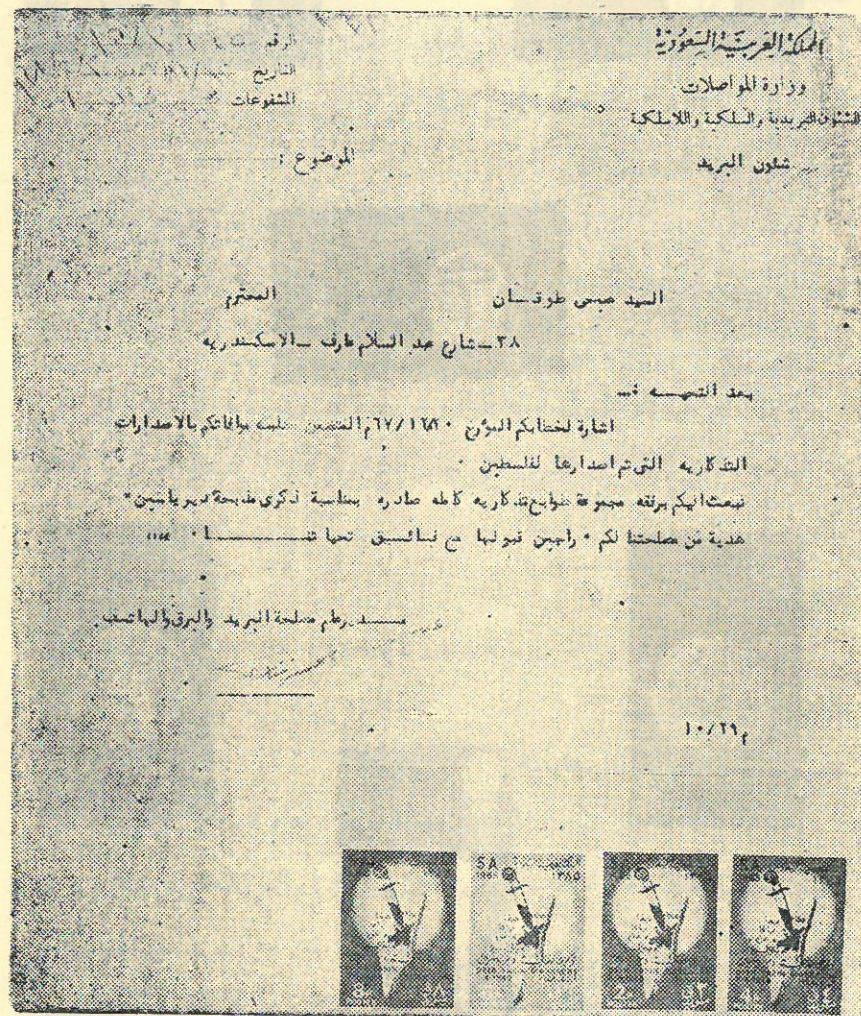 المملكة العربية السعودية
وزارة المواصلات
للشئون البريدية والسلكية واللاسلكية
شئون البريد
الرقم
التاريخ
المشفوعات
الموضوع :
السيد صبحى طوقـان المحترم
٣٨ ــ شارع عبد السلام عارف ــ الاسكندريه
بعد التحيــه :ــ
اشارة لخطابكم المؤرخ المتضمن طلبه موافاتكم بالاصدارات
التذكاريه التى تم اصدارها لفلسطين ٠
نبعث اليكم برفقه مجموعة طوابع تذكاريه كامله صادره بمناسبة ذكرى مذبحة دير ياسين"
هدية من مصلحتنا لكم ٠ راجين قبولها مع فـائـــق تحياتنــــــــا ٠
مـــدير عام مصلحة البريد والبرق والهاتف
م ١٠/٢٩
8 ٨
SA ١٣٨٥
2 ٢
4 ٤